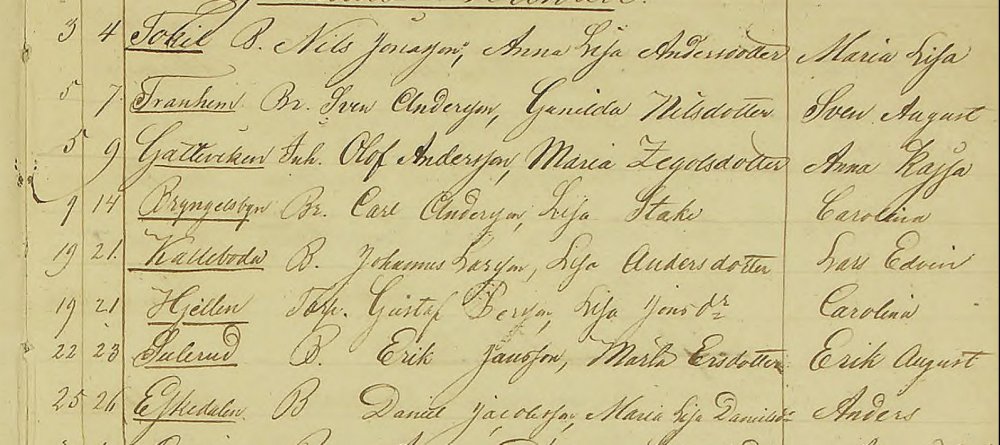 3 4 Tokil B. Nils Jonasson, Anna Lisa Andersdotter Maria Lisa
5 7 Tranhem Br. Sven Anderson, Gunilda Nilsdotter Sven August
5 9 Gätteviken Inh. Olof Andersson, Maria Zegolsdotter Anna Kajsa
9 14 Bryngelsbyn Br. Carl Anderson, Lisa Stake Carolina
19 21. Kalleboda B. Johannes Larson, Lisa Andersdotter Lars Edvin
19 21 Hjellen Torp. Gustaf Person, Lisa Jonsdr Carolina
22 23 Sulerud B. Erik Jansson, Marta Ersdotter Erik August
25 26 Eskedalen B Daniel Jacobsson, Maria Lisa Danielsdr Anders